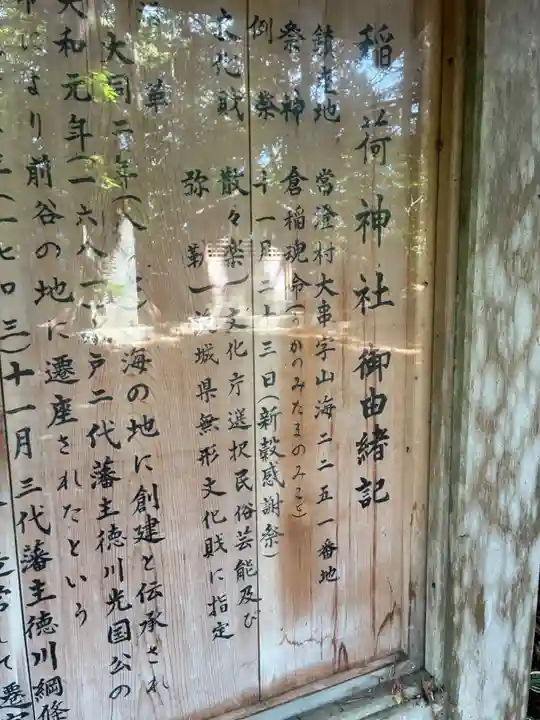 稲荷神社御由緒記
鎮座地 常澄村大串字山海二二五一番地
祭神 倉稲魂命(うかのみたまのみこと)
例祭 十一月二十三日(新穀感謝祭)
文化財 散々楽(文化庁選択民俗芸能及び
弥 茨城県無形文化財に指定
沿革
大同二年(八 海の地に創建と伝承され
天和元年(一六八一 戸二代藩主徳川光国公の
命により前谷の地に遷座されたという
(一七〇三)十一月三代藩主徳川綱條
て遷